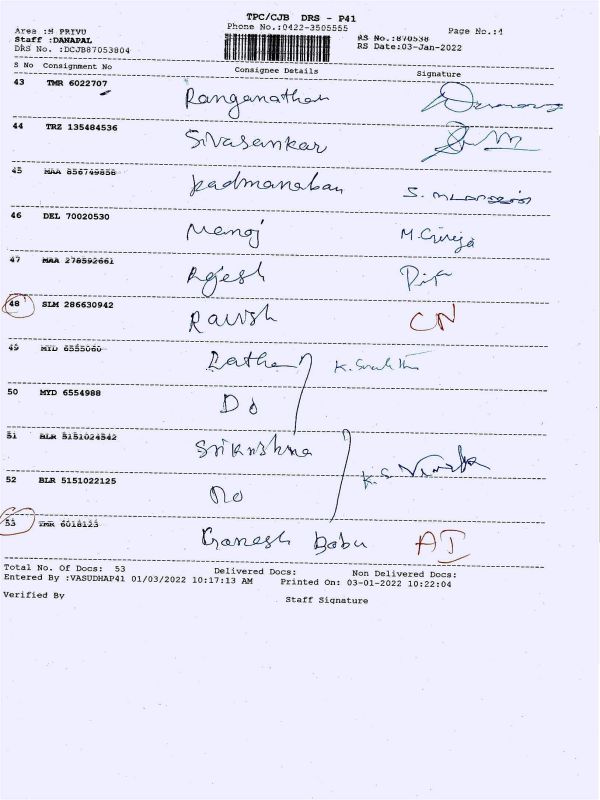 TPC/CJB DRS - P41
Phone No.:0422-3505555
Area :M PRIVU
Staff :DANAPAL
DRS No. :DCJB87053804
RS No.:870538
RS Date:03-Jan-2022
Page No.:4
S No Consignment No Consignee Details Signature
43 TMR 6022707 Ranganathan
44 TRZ 135484536 Sivasankar
45 MAA 856749858 Padmanaban
46 DEL 70020530 Manoj M. Girija
47 MAA 278592661 Rajesh
48 SLM 286630942 CN
49 MYD 6555060
50 MYD 6554988 Do
51 BLR 5151024542 Srikrishna
52 BLR 5151022125 Do
53 TMR 6018123 Ganesh Babu AI
Total No. Of Docs: 53 Delivered Docs: Non Delivered Docs:
Entered By :VASUDHAP41 01/03/2022 10:17:13 AM Printed On: 03-01-2022 10:22:04
Verified By Staff Signature